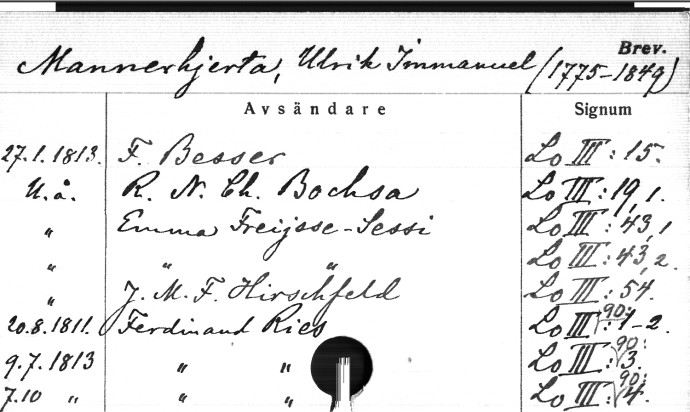 Brev.
Mannerhjerta, Ulrik Immanuel (1775-1849)
Avsändare Signum
27.1.1813. F. Besser Lo III: 15.
U.å. R. N. Ch. Bochsa Lo III: 19,1.
" Emma Freijsse-Sessi Lo III: 43,1
" " " Lo III: 43,2.
" J. M. F. Hirschfeld Lo III: 54.
20.8.1811. Ferdinand Ries Lo III: 90: 1-2.
9.7.1813 " " Lo III: 90: 3.
7.10 " " " Lo III: 90: 4.